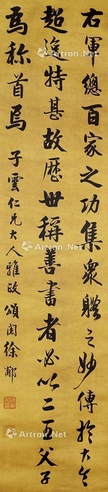 右軍總百家之功集衆體之妙傳於大令
超逸特甚故歷世稱善書者必以二王父子
爲稱首焉 子雲仁兄大人雅政 頌閣徐郙